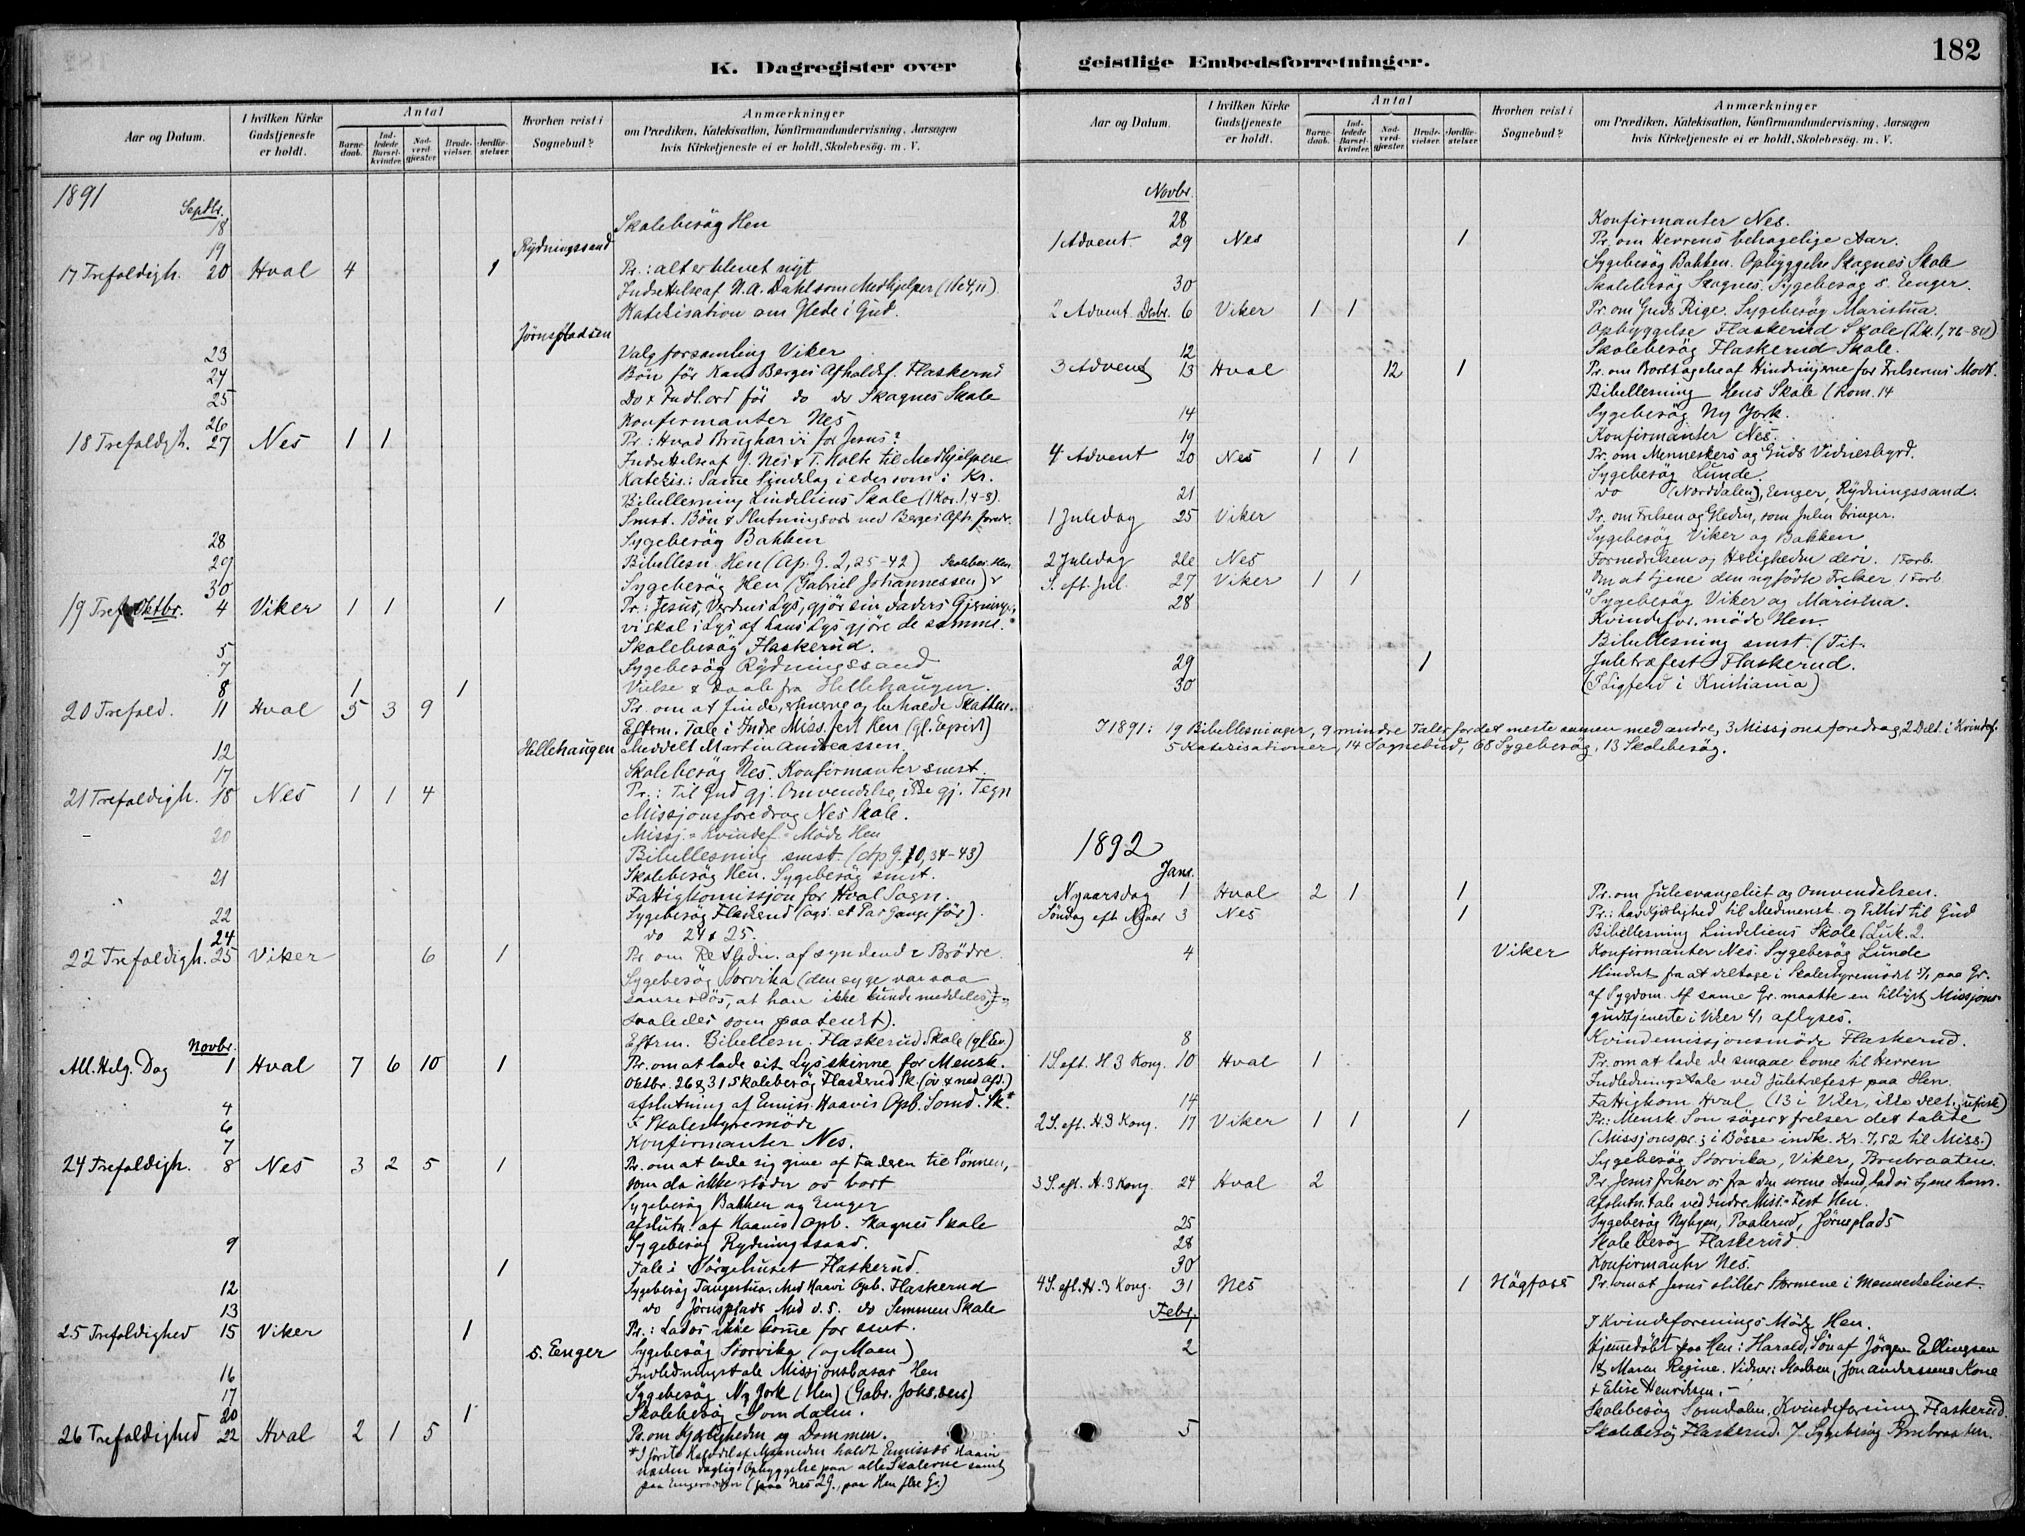 182
K. Dagregister over
Aar og Datum.
I hvilken Kirke Gudstjeneste er holdt.
Antal
Barnedaab.
Indledede Barselkvinder.
Nadverdgjæster.
Brudevielser.
Jordfæstelser.
Hvorhen reist i Sognebud?
Anmærkninger
om Prædiken, Katekisation, Konfirmandundervisning, Aarsagen
hvis Kirketjeneste ei er holdt, Skolebesög. m. V.
1891
Septbr.
18 Skolebesög Hen
19 Rydningssand
17 Trefoldigh. 20 Hval 4 1 Pr.: alt er blevet nyt
Indsettelse af N. A. Dahl som Medhjelper
Katekisation om Glede i Gud.
Jörnspladsen
23 Valgforsamling Viker
24 Bön för Kand Berges Afholdsf. Flaskerud
25 Do + Indl. ord för do do Skagnes Skole
26 Konfirmanter Nes
18 Trefoldigh. 27 Nes 1 1 Pr.: Hvad Brug har vi for Jesus?
Indsettelse af J. Nes & T. Holte til Medhjelpere
Katekis.: Same Sindelag i eder som i Kr.
Bibellesning Lindeliens Skole (1 Kor. 1,4-8)
Smst. Bön & Slutningsord ved Berges Afh. foredr.
28 Sygebesög Bakken
29 Bibellesn. Hen (Ap. G. 2,25-42) Skolebes. Hen
30 Sygebesög Hen (Gabriel Johannessen)
19 Tref. Oktbr. 4 Viker 1 1 1 Pr.: Jesus, Verdens Lys, gjör sin Faders Gjerninger,
vi skal i Lys af hans Lys gjöre de samme.
5 Skolebesög Flaskerud.
7 Sygebesög Rydningssand
8 1 1 Vielse & Daab fra Hellehaugen.
20 Trefold. 11 Hval 5 3 9 Pr. om at finde, erhverve og beholde Skatten.
Eftrm. Tale i Indre Miss. fest Hen
12 Hellehaugen Meddelt Martin Andreassen.
17 Skolebesög Nes. Konfirmanter smst.
21 Trefoldigh. 18 Nes 1 1 4 Pr.: Til Gud gj. Omvendelse, ikke gj. Tegn
Missjonsforedrag Nes Skole.
20 Missj.-Kvindef.-Möde Hen
Bibellesning smst. (Ap G. 10,34-43)
21 Skolebesög Hen. Sygebesög smst.
Fattigkomissjon for Hval Sogn.
22 Sygebesög Flaskerud (ogs. et Par Gange för).
24 do 24 & 25.
22 Trefoldigh. 25 Viker 6 1 Pr. om af syndende Brödre.
Sygebesög Storvika (den syge var saa
sanseslös, at han ikke kunde meddeles,
saaledes som paatenkt).
Eftrm. Bibellesn. Flaskerud Skole
Novbr.
All. Helg. Dag 1 Hval 7 6 10 1 Pr. om at lade sit Lys skinne for Mensk.
Oktbr. 26 & 31 Skolebesög Flaskerud Sk.
4 Afslutning af Emiss. Haavis Opb. Somd. Sk.*
6 I Skolestyremöde
7 Konfirmanter Nes.
24 Trefoldigh. 8 Nes 3 2 5 1 Pr. om at lade sig give af Faderen til Sönnen,
som da ikke stöder os bort
Sygebesög Bakken og Eenger
Afslutn. af Haavis Opb. Skagnes Skole
9 Sygebesög Rydningssand.
1 Tale i Sörgehuset Flaskerud.
12 Sygebesög Tangestua. Med Haavi Opb. Flaskerud
13 do Jörnsplads Med d. S. do Semmen Skole
25 Trefoldighed 15 Viker 1 Pr.: Lad os ikke komme for sent.
S. Eenger Sygebesög Storvika (og Moen)
16 Indledningstale Missjonsbasar Hen
17 Sygebesög Ny York (Hen) (Gabr. Johs.sens)
20 1 Skolebesög Somdalen.
26 Trefoldighed 22 Hval 2 1 5 Pr. om Kjerligheden og Dommen.
* I förste Halvdel af Maaneden holdt Emissær Haavi
nesten daglig Opbyggelse paa alle Skolerne samt
paa (paa Nes 2 G., paa Hen flere G.)
geistlige Embedsforretninger.
Aar og Datum.
I hvilken Kirke Gudstjeneste er holdt.
Antal
Barnedaab.
Indledede Barselkvinder.
Nadverdgjæster.
Brudevielser.
Jordfæstelser.
Hvorhen reist i Sognebud?
Anmærkninger
om Prædiken, Katekisation, Konfirmandundervisning, Aarsagen
hvis Kirketjeneste ei er holdt, Skolebesög. m. V.
Novbr.
28 Konfirmanter Nes.
1 Advent. 29 Nes 1 Pr. om Herrens behagelige Aar.
Sygebesög Bakken. Opbyggelse Skagnes Skole
30 Skolebesög Skagnes. Sygebesög S. Eenger.
2 Advent Desbr. 6 Viker 1 1 Pr. om Guds Rige. Sygebesög Maristua.
Opbyggelse Flaskerud Skole (Luk. 1, 76-80)
12 Skolebesög Flaskerud Skole.
3 Advent 13 Hval 12 1 Pr. om Borttagelse af Hindringerne for Frelserens Modt.
Bibellesning Hens Skole (Rom. 14
14 Sygebesög Ny York.
19 Konfirmanter Nes.
4 Advent 20 Nes 1 1 Pr. om Menneskers og Guds Vidnesbyrd.
Sygebesög Lunde.
21 do (Norddalen), Eenger, Rydningssand.
1 Juledag 25 Viker Pr. om Frelsen og Gleden, som Julen bringer.
Sygebesög Viker og Bakken
2 Juledag 26 Nes Fornedrelsen og Herligheden deri. 1 Forb.
S. eft. Jul. 27 Viker 1 1 Om at tjene den nyfödte Frelser 1 Forb.
28 Sygebesög Viker og Maristua.
Kvindefor. möde Hen.
Bibellesning smst (Tit.
29 1 Juletræfest Flaskerud.
30 (I Ligferd i Kristiania)
I 1891: 19 Bibellesninger, 9 mindre Taler for det meste sammen med andre, 3 Missjonsforedrag 2 Delt. i Kvindef.
5 Katekisationer, 14 Sognebud, 68 Sygebesög, 13 Skolebesög.
1892
Janr.
Nyaarsdag 1 Hval 2 1 1 Pr. om Juleevangeliet og Omvendelsen.
Söndag eft Nyaar 3 Nes 1 Pr.: hav Kjerlighed til Medmensk. og Tillid til Gud
Bibellesning Lindeliens Skole (Luk. 2.
4 Viker Konfirmanter Nes. Sygebesög Lunde
Hindret fra at deltage i Skolestyremödet 5/1 paa Gr.
af Sygdom. Af same Gr. maatte en tillyst Missjons-
gudstjeneste i Viker 6/1 aflyses.
8 Kvindemissjonsmöde Flaskerud.
1 S. eft. H 3 Kong. 10 Hval 1 Pr. om at lade de smaae kome til Herren
Indledningstale ved Juletræfest paa Hen.
14 Fattigkom Hval (13 i Viker, ikke delt.
2 S. eft. H. 3 Kong. 17 Viker 1 1 1 Pr.: Mensk. Sön söger & frelser det tabte
(Missjonspr.; i Bösse indk. Kr. 7,52 til Miss.)
Sygebesög Storvika, Viker, Brubraaten.
3 S. eft. H. 3 Kong. 24 Hval 2 Pr. Jesus frelser os fra den urene Aand, lad os tjene ham.
Afslutn. tale ved Indre Miss. Fest Hen.
25 Sygebesög Nybyen, Paalerud, Jörnsplads
28 Skolebesög Flaskerud.
30 Konfirmanter Nes.
4 S. eft. H. 3 Kong. 31 Nes 1 Högfoss Pr. om at Jesus stiller Stormene i Menneskelivet.
Febr.
1 I Kvindeforenings Möde Hen.
2 Hjemedöbt paa Hen: Harald, Sön af Jörgen Ellingsen
& Maren Regine. Vidner: Moderen, Jon Anderssens Kone
& Elise Henriksen. -
Skolebesög Somdalen, Kvindeforening Flaskerud.
5 Skolebesög Flaskerud. 7 Sygebesög Brubraaten.